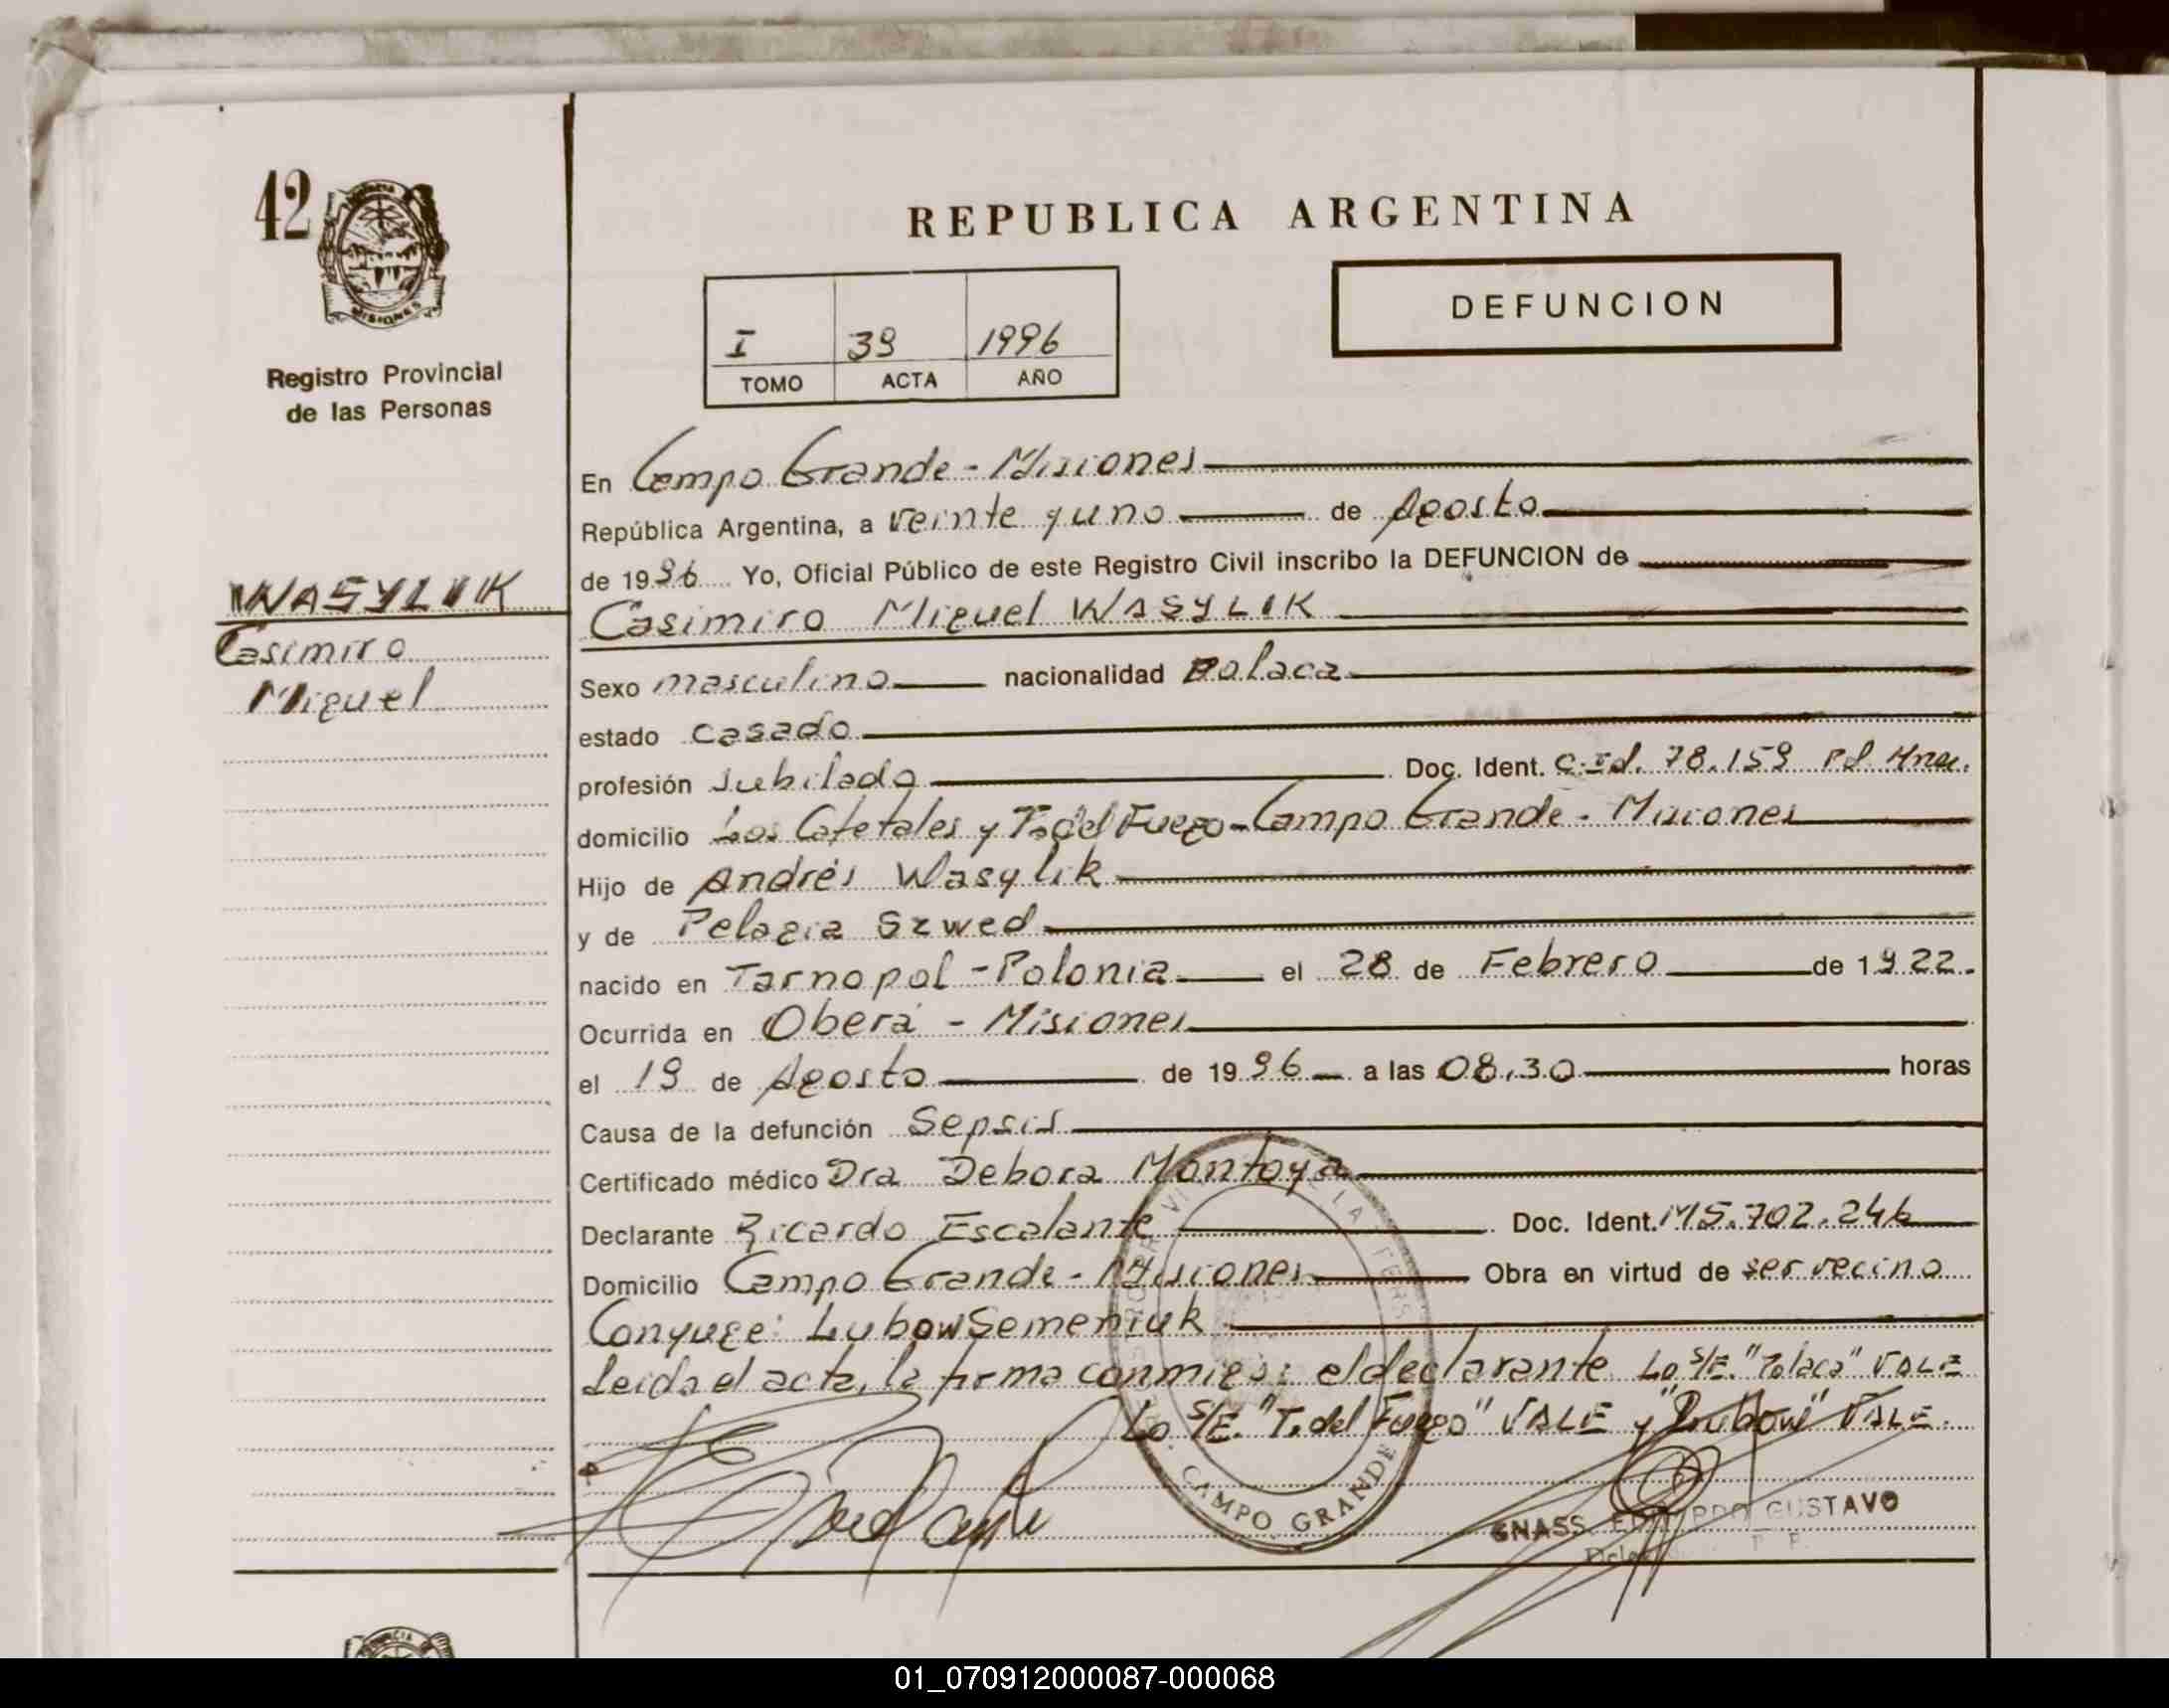 42
MISIONES
Registro Provincial
de las Personas
WASYLIK
Casimiro
Miguel
REPUBLICA ARGENTINA
DEFUNCION
I 39 1996
TOMO ACTA AÑO
En Campo Grande - Misiones
República Argentina, a veinte y uno de Agosto
de 1996 Yo, Oficial Público de este Registro Civil inscribo la DEFUNCION de
Casimiro Miguel WASYLIK
Sexo masculino nacionalidad Polaca
estado casado
profesión Jubilado Doc. Ident. C.Id. 78.159
domicilio Los Cafetales y T. del Fuego - Campo Grande - Misiones
Hijo de Andrés Wasylik
y de Pelagia Szwed
nacido en Tarnopol - Polonia el 28 de Febrero de 1922.
Ocurrida en Oberá - Misiones
el 19 de Agosto de 1996 a las 08,30 horas
Causa de la defunción Sepsis
Certificado médico Dra Debora Montoya
Declarante Ricardo Escalante Doc. Ident. M5.702.246
Domicilio Campo Grande - Misiones Obra en virtud de ser vecino
Conyuge: Lubow Semeniuk
Leida el acta, la firma conmigo: el declarante Lo S/E. "Polaca" VALE
Lo S/E. "T. del Fuego" VALE y "Lubow" VALE.
CAMPO GRANDE
GUSTAVO
01_070912000087-000068